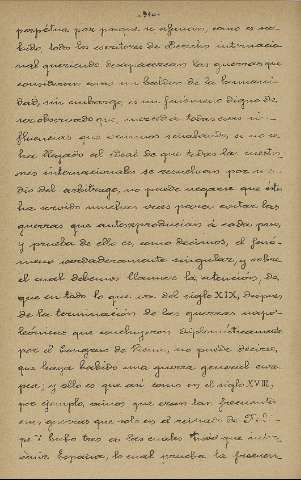 -310-
perpétua paz porque se afanan, como es sa-
bido, todos los escritores de Derecho internacio-
nal queriendo desaparezcan las guerras que
constituyen como un baldón de la humani-
dad, sin embargo, es un fenómeno digno de
ser observado que, merced a todas esas in-
fluencias que venimos señalando, si no se
ha llegado al ideal de que todas las cuestio-
nes internacionales se resuelvan por me-
dio del arbitraje, no puede negarse que éste
ha servido muchas veces para evitar las
guerras que antes se producían á cada paso,
y prueba de ello es, como decimos, el fenó-
meno verdaderamente singular, y sobre
el cual debemos llamar la atención, de
que en todo lo que va del siglo XIX, después
de la terminación de las guerras napo-
leónicas que concluyeron diplomáticamente
por el Congreso de Viena, no puede decirse,
que haya habido una guerra general euro-
pea, y ello es que así como en el siglo XVIII,
por ejemplo, vimos que eran tan frecuentes
esas guerras que solo en el reinado de Feli-
pe V hubo tres en las cuales tuvo que inter-
venir España, lo cual prueba la frecuen-